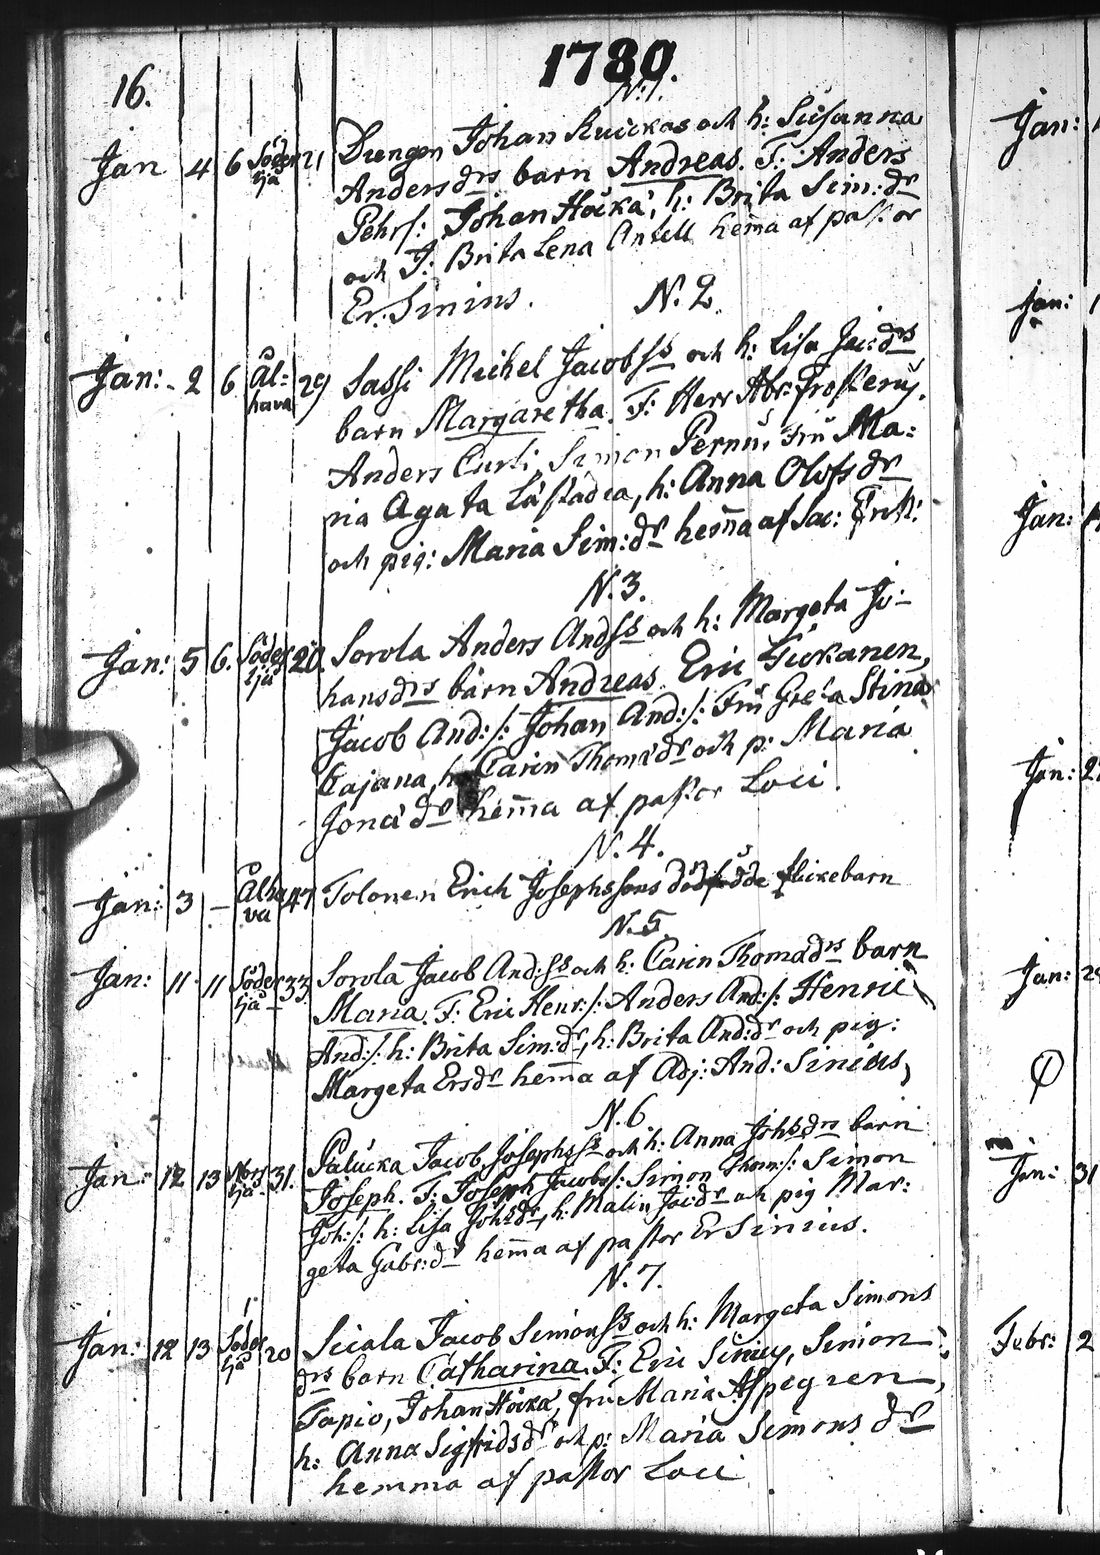 1780.
16.
N:1.
Jan 4 6 Söder ljä 21 Drengen Johan Kuickas och h: Susanna
Anders drs barn Andreas. F: Anders
Pehrs: Johan Höckä, h: Brita Sim: dr
och J: Brita Lena Antell hem̄a af pastor
Er: Sinius.
N:2
Jan: 2 6 Ål= hava 29 Sassi Michel Jacobss och h: Lisa Jac: drs
barn Margaretha. F: Herr Abr: Frosterus,
Anders Curti, Simon Pernu, Fru Ma:
ria Agata Låstadia, h: Anna Olofs dr
och pig: Maria Sim: dr hem̄a af Sac: Frost:
N.3.
Jan: 5 6. Söder ljä 20. Sorola Anders Andss och h: Margeta Jo=
hans drs barn Andreas. Eric Kickanen,
Jacob And: s: Johan And: s: Fru Greta Stina
Cajana, h: Carin Thoma dr och p: Maria
Jona dr hem̄a af pastor Loci.
N.4.
Jan: 3 – Ålha va 47 Tolonen Erich Josephssons dödfödde flickebarn
N.5.
Jan: 11 11 Söder ljä 33. Sorola Jacob And: ss och h: Carin Thoma drs barn
Maria. F: Eric Henr: s: Anders And: s: Henric
And: s: h: Brita Sim: dr, h: Brita And: dr och pig:
Margeta Ersdr hem̄a af Adj: And: Sinius,
N.6
Jan: 12 13 Norr ljä 31. Palucka Jacob Josephss och h: Anna Johs drs barn
Joseph. F: Joseph Jacobs: Simon Thom: s: Simon
Joh: s: h: Lisa Johs dr, h: Malin Jac dr och pig Mar:
geta Gabr: dr hem̄a af pastor Er Sinius.
N.7.
Jan: 12 13 Söder ljä 20 Sicala Jacob Simonss och h: Margeta Simons
drs barn Catharina. F: Eric Sinius, Simon
Tapio, Johan Höckä, fru Maria Aspegren,
h: Anna Sigfrids dr och p: Maria Simons dr
hemma af pastor Loci
Jan:
Jan:
Jan:
Jan: 2
Jan: 2
Jan: 31
Febr: 2